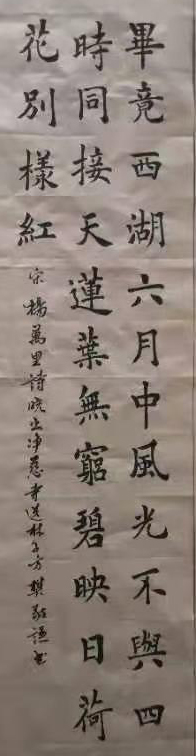 畢竟西湖六月中風光不與四
時同接天蓮葉無窮碧映日荷
花別樣紅
宋楊萬里詩曉出净慈寺送林子方樊